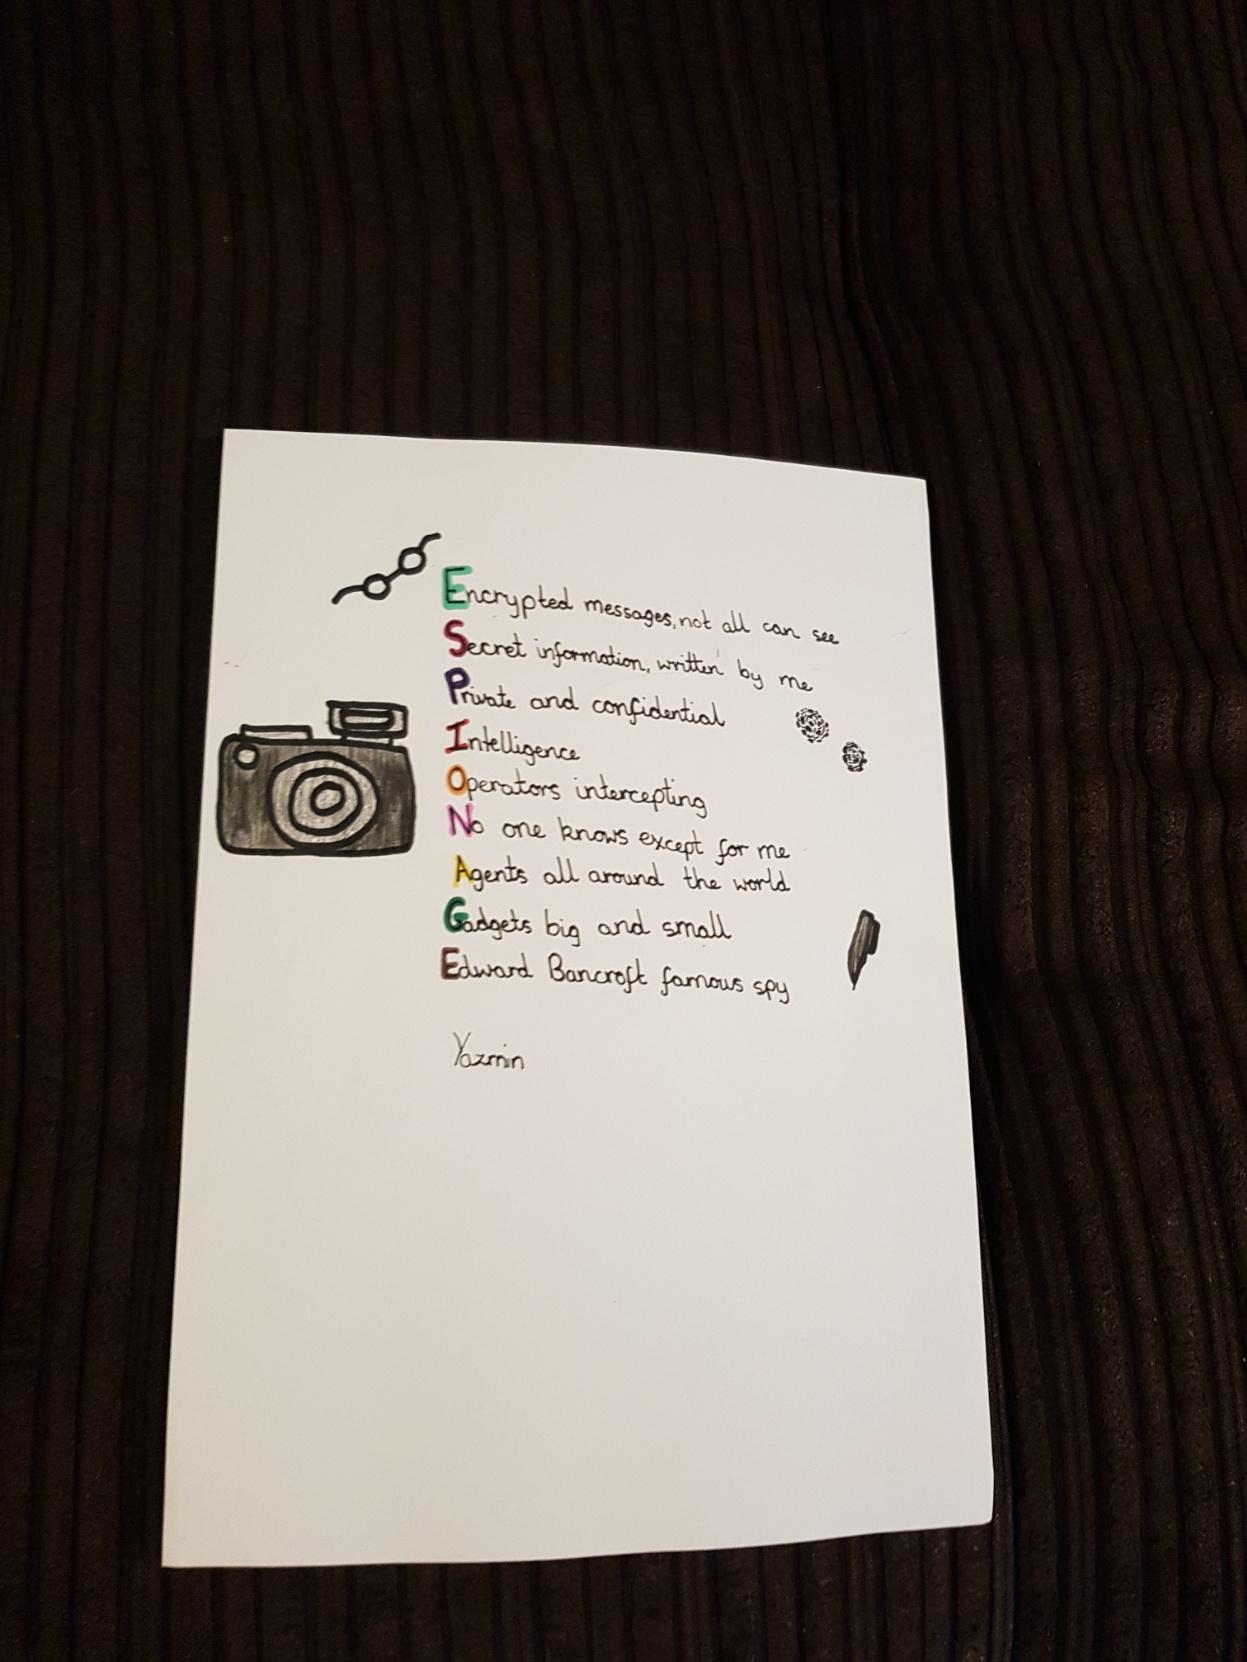 Encrypted messages, not all can see
Secret information, written by me
Private and confidential
Intelligence
Operators intercepting
No one knows except for me
Agents all around the world
Gadgets big and small
Edward Bancroft famous spy
Yazmin